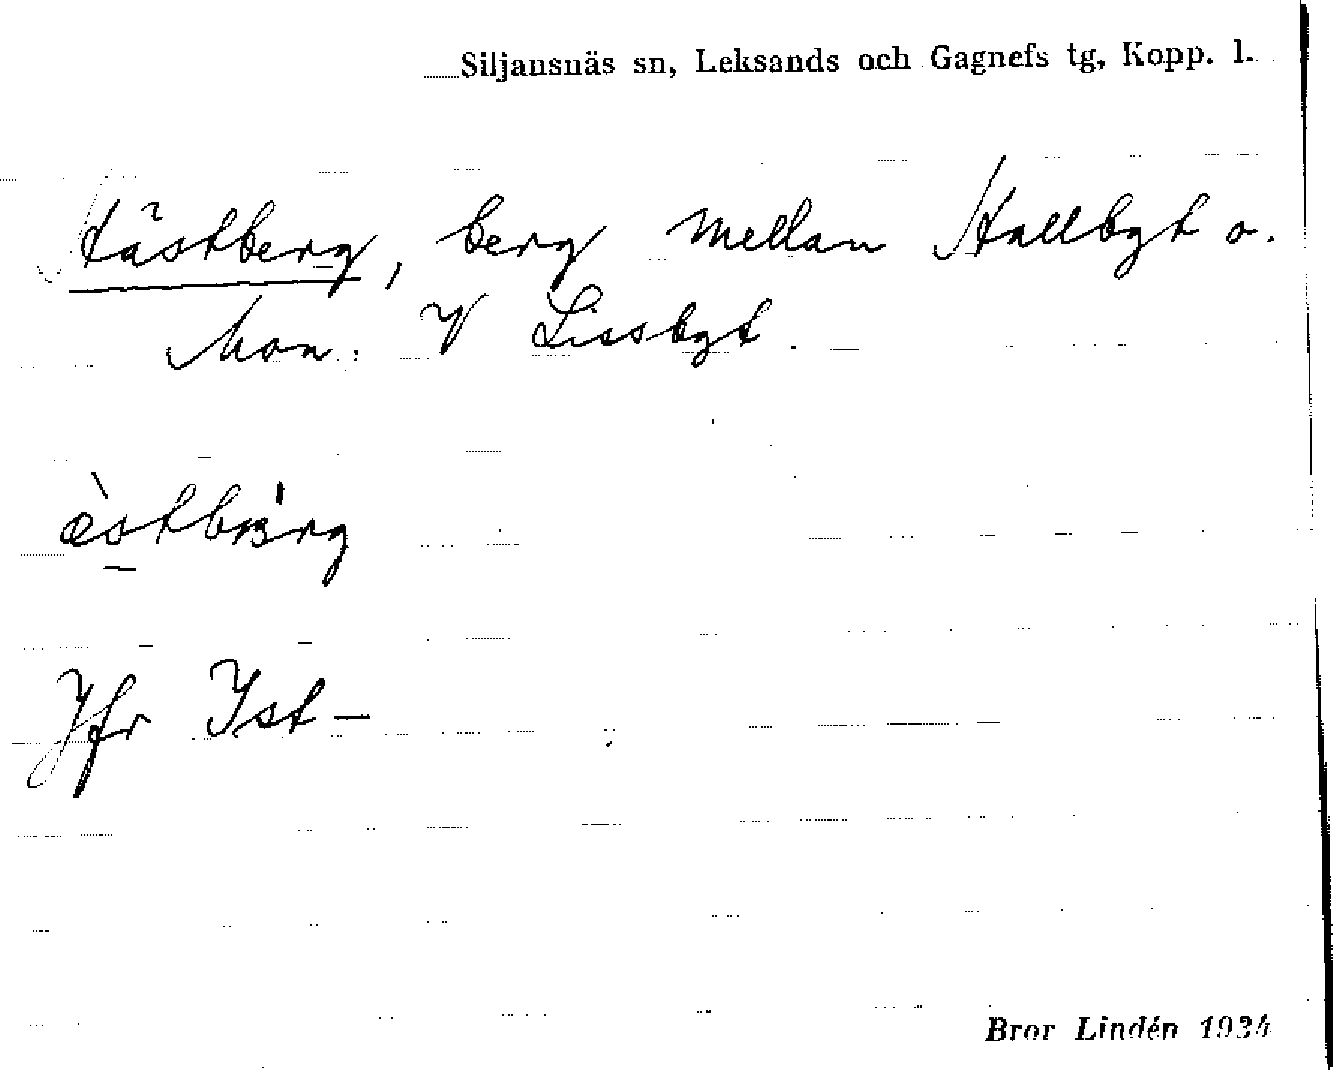 Siljansnäs sn, Leksands och Gagnefs tg, Kopp. l.
Hästberg, berg mellan Hallbyt o.
Mon. V Lissbyt.
æ̀stbärg
Jfr Ist-
Bror Lindén 1934